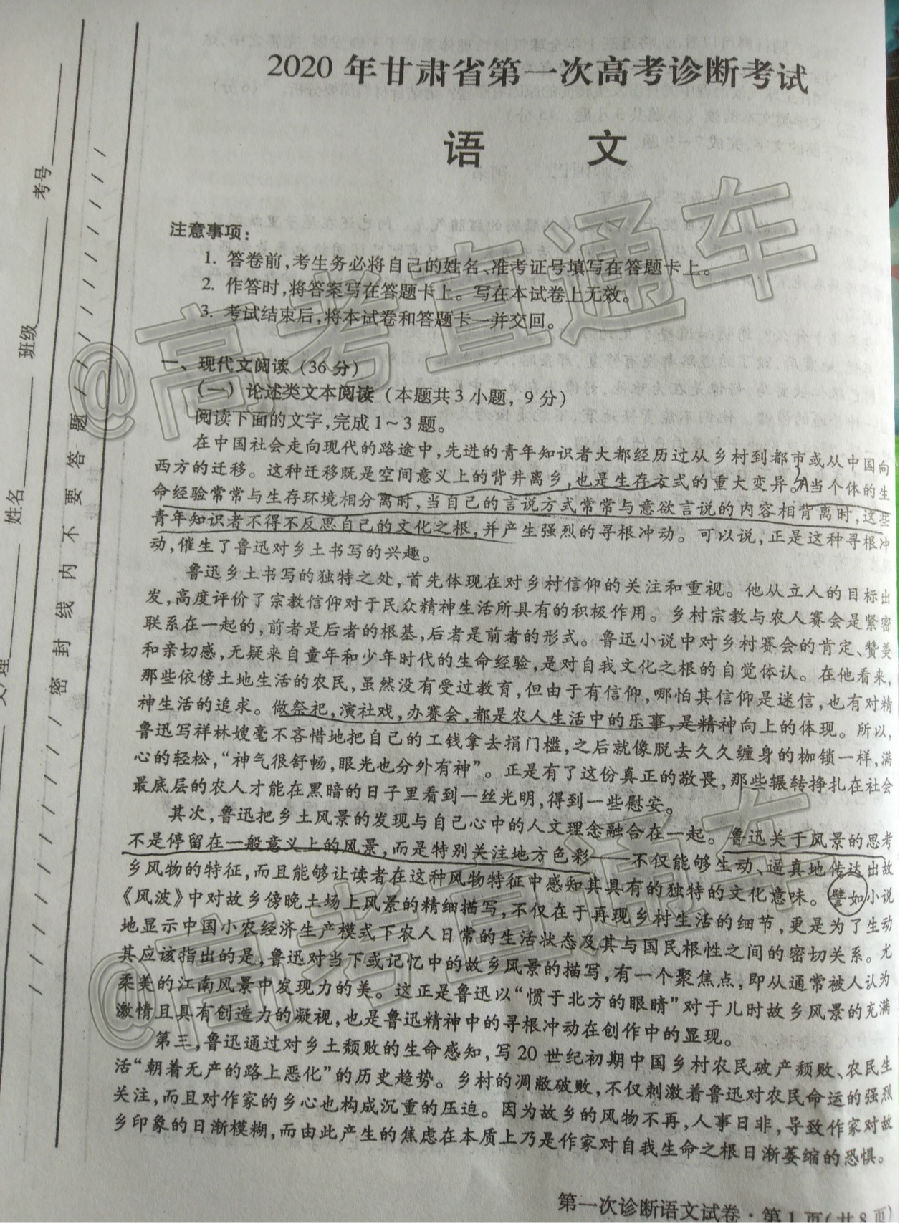 2020 年甘肃省第一次高考诊断考试
语 文
注意事项:
1. 答卷前,考生务必将自己的姓名、准考证号填写在答题卡上。
2. 作答时,将答案写在答题卡上。写在本试卷上无效。
3. 考试结束后,将本试卷和答题卡一并交回。
一、现代文阅读(36 分)
(一)论述类文本阅读(本题共 3 小题,9 分)
阅读下面的文字,完成 1~3 题。
在中国社会走向现代的路途中,先进的青年知识者大都经历过从乡村到都市或从中国向
西方的迁移。这种迁移既是空间意义上的背井离乡,也是生存方式的重大变异。当个体的生
命经验常常与生存环境相分离时,当自己的言说方式常常与意欲言说的内容相背离时,这些
青年知识者不得不反思自己的文化之根,并产生强烈的寻根冲动。可以说,正是这种寻根冲
动,催生了鲁迅对乡土书写的兴趣。
鲁迅乡土书写的独特之处,首先体现在对乡村信仰的关注和重视。他从立人的目标出
发,高度评价了宗教信仰对于民众精神生活所具有的积极作用。乡村宗教与农人赛会是紧密
联系在一起的,前者是后者的根基,后者是前者的形式。鲁迅小说中对乡村赛会的肯定、赞美
和亲切感,无疑来自童年和少年时代的生命经验,是对自我文化之根的自觉体认。在他看来,
那些依傍土地生活的农民,虽然没有受过教育,但由于有信仰,哪怕其信仰是迷信,也有对精
神生活的追求。做祭祀,演社戏,办赛会,都是农人生活中的乐事,是精神向上的体现。所以,
鲁迅写祥林嫂毫不吝惜地把自己的工钱拿去捐门槛,之后就像脱去久久缠身的枷锁一样,满
心的轻松,“神气很舒畅,眼光也分外有神”。正是有了这份真正的敬畏,那些辗转挣扎在社会
最底层的农人才能在黑暗的日子里看到一丝光明,得到一些慰安。
其次,鲁迅把乡土风景的发现与自己心中的人文理念融合在一起。鲁迅关于风景的思考
不是停留在一般意义上的风景,而是特别关注地方色彩——不仅能够生动、逼真地传达出故
乡风物的特征,而且能够让读者在这种风物特征中感知其具有的独特的文化意味。譬如小说
《风波》中对故乡傍晚土场上风景的精细描写,不仅在于再现乡村生活的细节,更是为了生动
地显示中国小农经济生产模式下农人日常的生活状态及其与国民根性之间的密切关系。尤
其应该指出的是,鲁迅对当下或记忆中的故乡风景的描写,有一个聚焦点,即从通常被人认为
柔美的江南风景中发现力的美。这正是鲁迅以“惯于北方的眼睛”对于儿时故乡风景的充满
激情且具有创造力的凝视,也是鲁迅精神中的寻根冲动在创作中的显现。
第三,鲁迅通过对乡土颓败的生命感知,写 20 世纪初期中国乡村农民破产颓败、农民生
活“朝着无产的路上恶化”的历史趋势。乡村的凋敝破败,不仅刺激着鲁迅对农民命运的强烈
关注,而且对作家的乡心也构成沉重的压迫。因为故乡的风物不再,人事日非,导致作家对故
乡印象的日渐模糊,而由此产生的焦虑在本质上乃是作家对自我生命之根日渐萎缩的恐惧。
第一次诊断语文试卷·第 1 页(共 8 页)
考号
班级
姓名
密 封 线 内 不 要 答 题
@高考直通车
@高考直通车